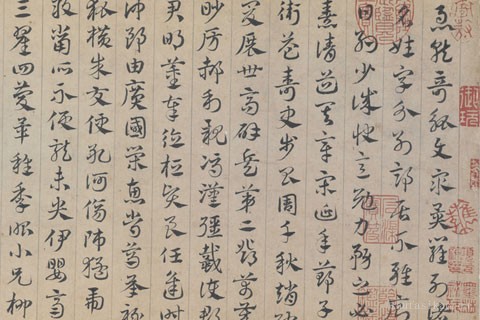 急就奇觚與衆異羅列諸
名姓字分別部居不雜廁
日約少誠快意勉力務之必
憙請道其章宋延年鄭子
衛益壽史步昌周千秋趙
爰展世高辟兵第二鄧萬歲
妙房郝利親馮漢彊戴護郡
君明董奉德桓賢良任逢時
仲郎由廣國榮惠常烏承祿
狐橫朱交便孔何傷師猛虎
敢當所不侵龍未央伊嬰齊
三翟回慶畢稚季昭小兄柳